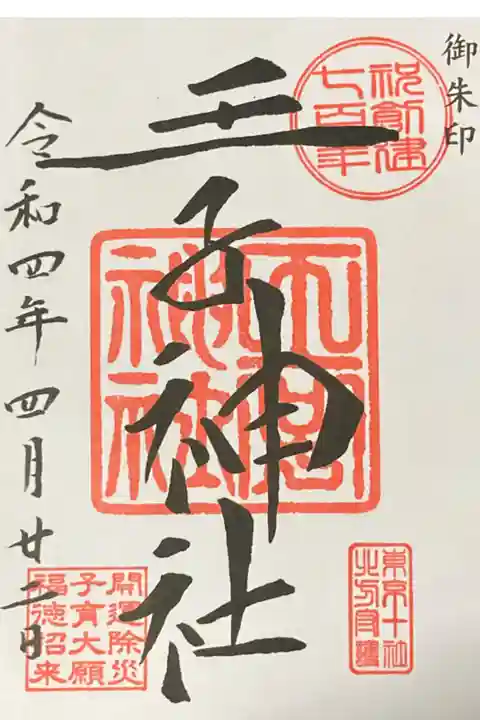 御朱印
祝創建
七百年
王子神社
東京十社
北方守護
令和四年四月廿二日
開運除災
子育大願
福徳招来